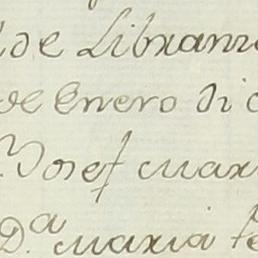 de Libranz
de Enero di
Josef Mari
D.ª Maria